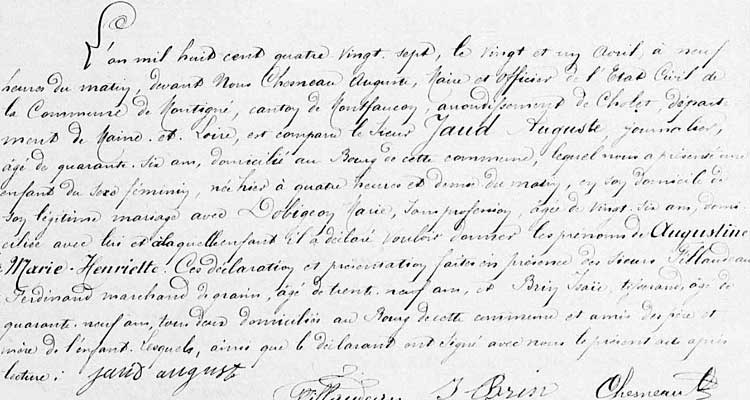 L'an mil huit cent quatre vingt. sept, le vingt et un Avril, à neuf
heures du matin, devant Nous Chesneau Auguste, Maire et Officier de l'Etat Civil de
la Commune de Montigné, canton de Montfaucon, arrondissement de Cholet, départ
ment de Maine. et. Loire, est comparu le Sieur Jaud Auguste, journalier,
âgé de quarante. six ans, domicilié au Bourg de cette commune, lequel nous a présenté une
enfant du sexe féminin, née hier à quatre heures et demie du matin, en son domicile de
son légitime mariage avec Dobigeon Marie, sans profession, âgée de vingt. six ans, domi
ciliée avec lui et à laquelle enfant il a déclaré vouloir donner les prénoms de Augustine
Marie. Henriette. Ces déclaration et présentation faites en présence des Sieurs
Ferdinand marchand de grain, âgé de trente. neuf ans, et Brin Isaïe, tisserand, âgé de
quarante. neuf ans, tous deux domiciliés au Bourg de cette commune et amis des père et
mère de l'enfant. Lesquels, ainsi que le déclarant ont signé avec nous le présent acte après
lecture. jaud august
J Brin Chesneau